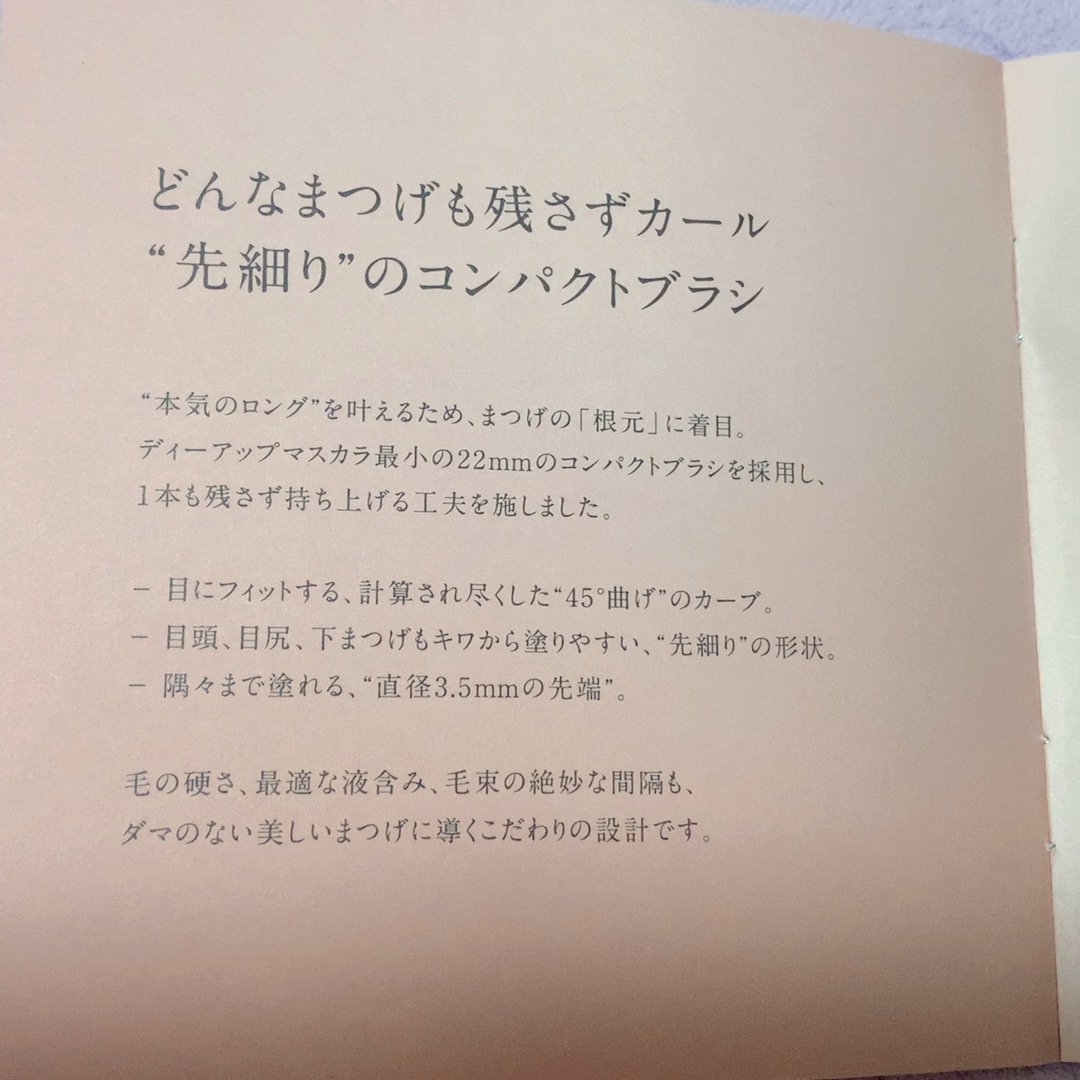 どんなまつげも残さずカール
“先細り”のコンパクトブラシ
“本気のロング”を叶えるため、まつげの「根元」に着目。
ディーアップマスカラ最小の22mmのコンパクトブラシを採用し、
1本も残さず持ち上げる工夫を施しました。
– 目にフィットする、計算され尽くした“45°曲げ”のカーブ。
– 目頭、目尻、下まつげもキワから塗りやすい、“先細り”の形状。
– 隅々まで塗れる、“直径3.5mmの先端”。
毛の硬さ、最適な液含み、毛束の絶妙な間隔も、
ダマのない美しいまつげに導くこだわりの設計です。